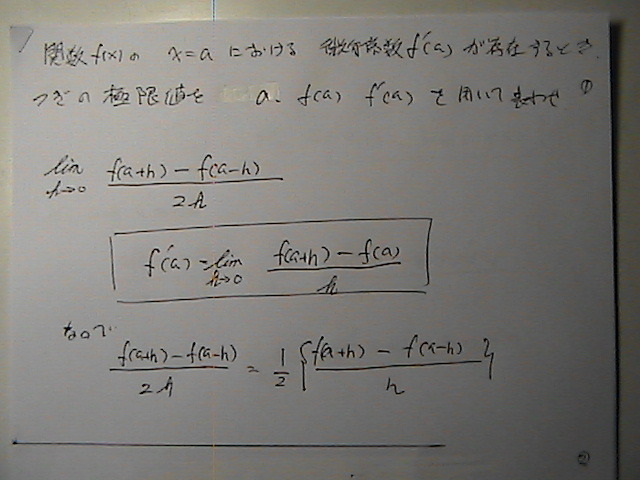 関数 f(x) の x=a における 微分係数 f'(a) が存在するとき
つぎの極限値を a. f(a) f'(a) を用いて表わせ ①
lim h→0 f(a+h) - f(a-h) / 2h
f'(a) = lim h→0 f(a+h) - f(a) / h
なので
f(a+h) - f(a-h) / 2h = 1/2 { f(a+h) - f(a-h) / h }
②